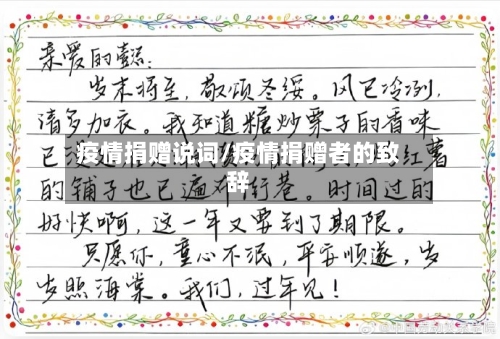 亲爱的懿:
岁末将至，敬颂冬绥。风已冷冽，
请多加衣。我知道糖炒栗子的香味
已
红薯
疫情捐赠说词/疫情捐赠者的致
辞
的铺子也已遍布街巷。时间过的
好快啊，这一年又要到了期限。
只愿你，童心不泯，平安顺遂，岁
岁照海棠。我们，过年见！